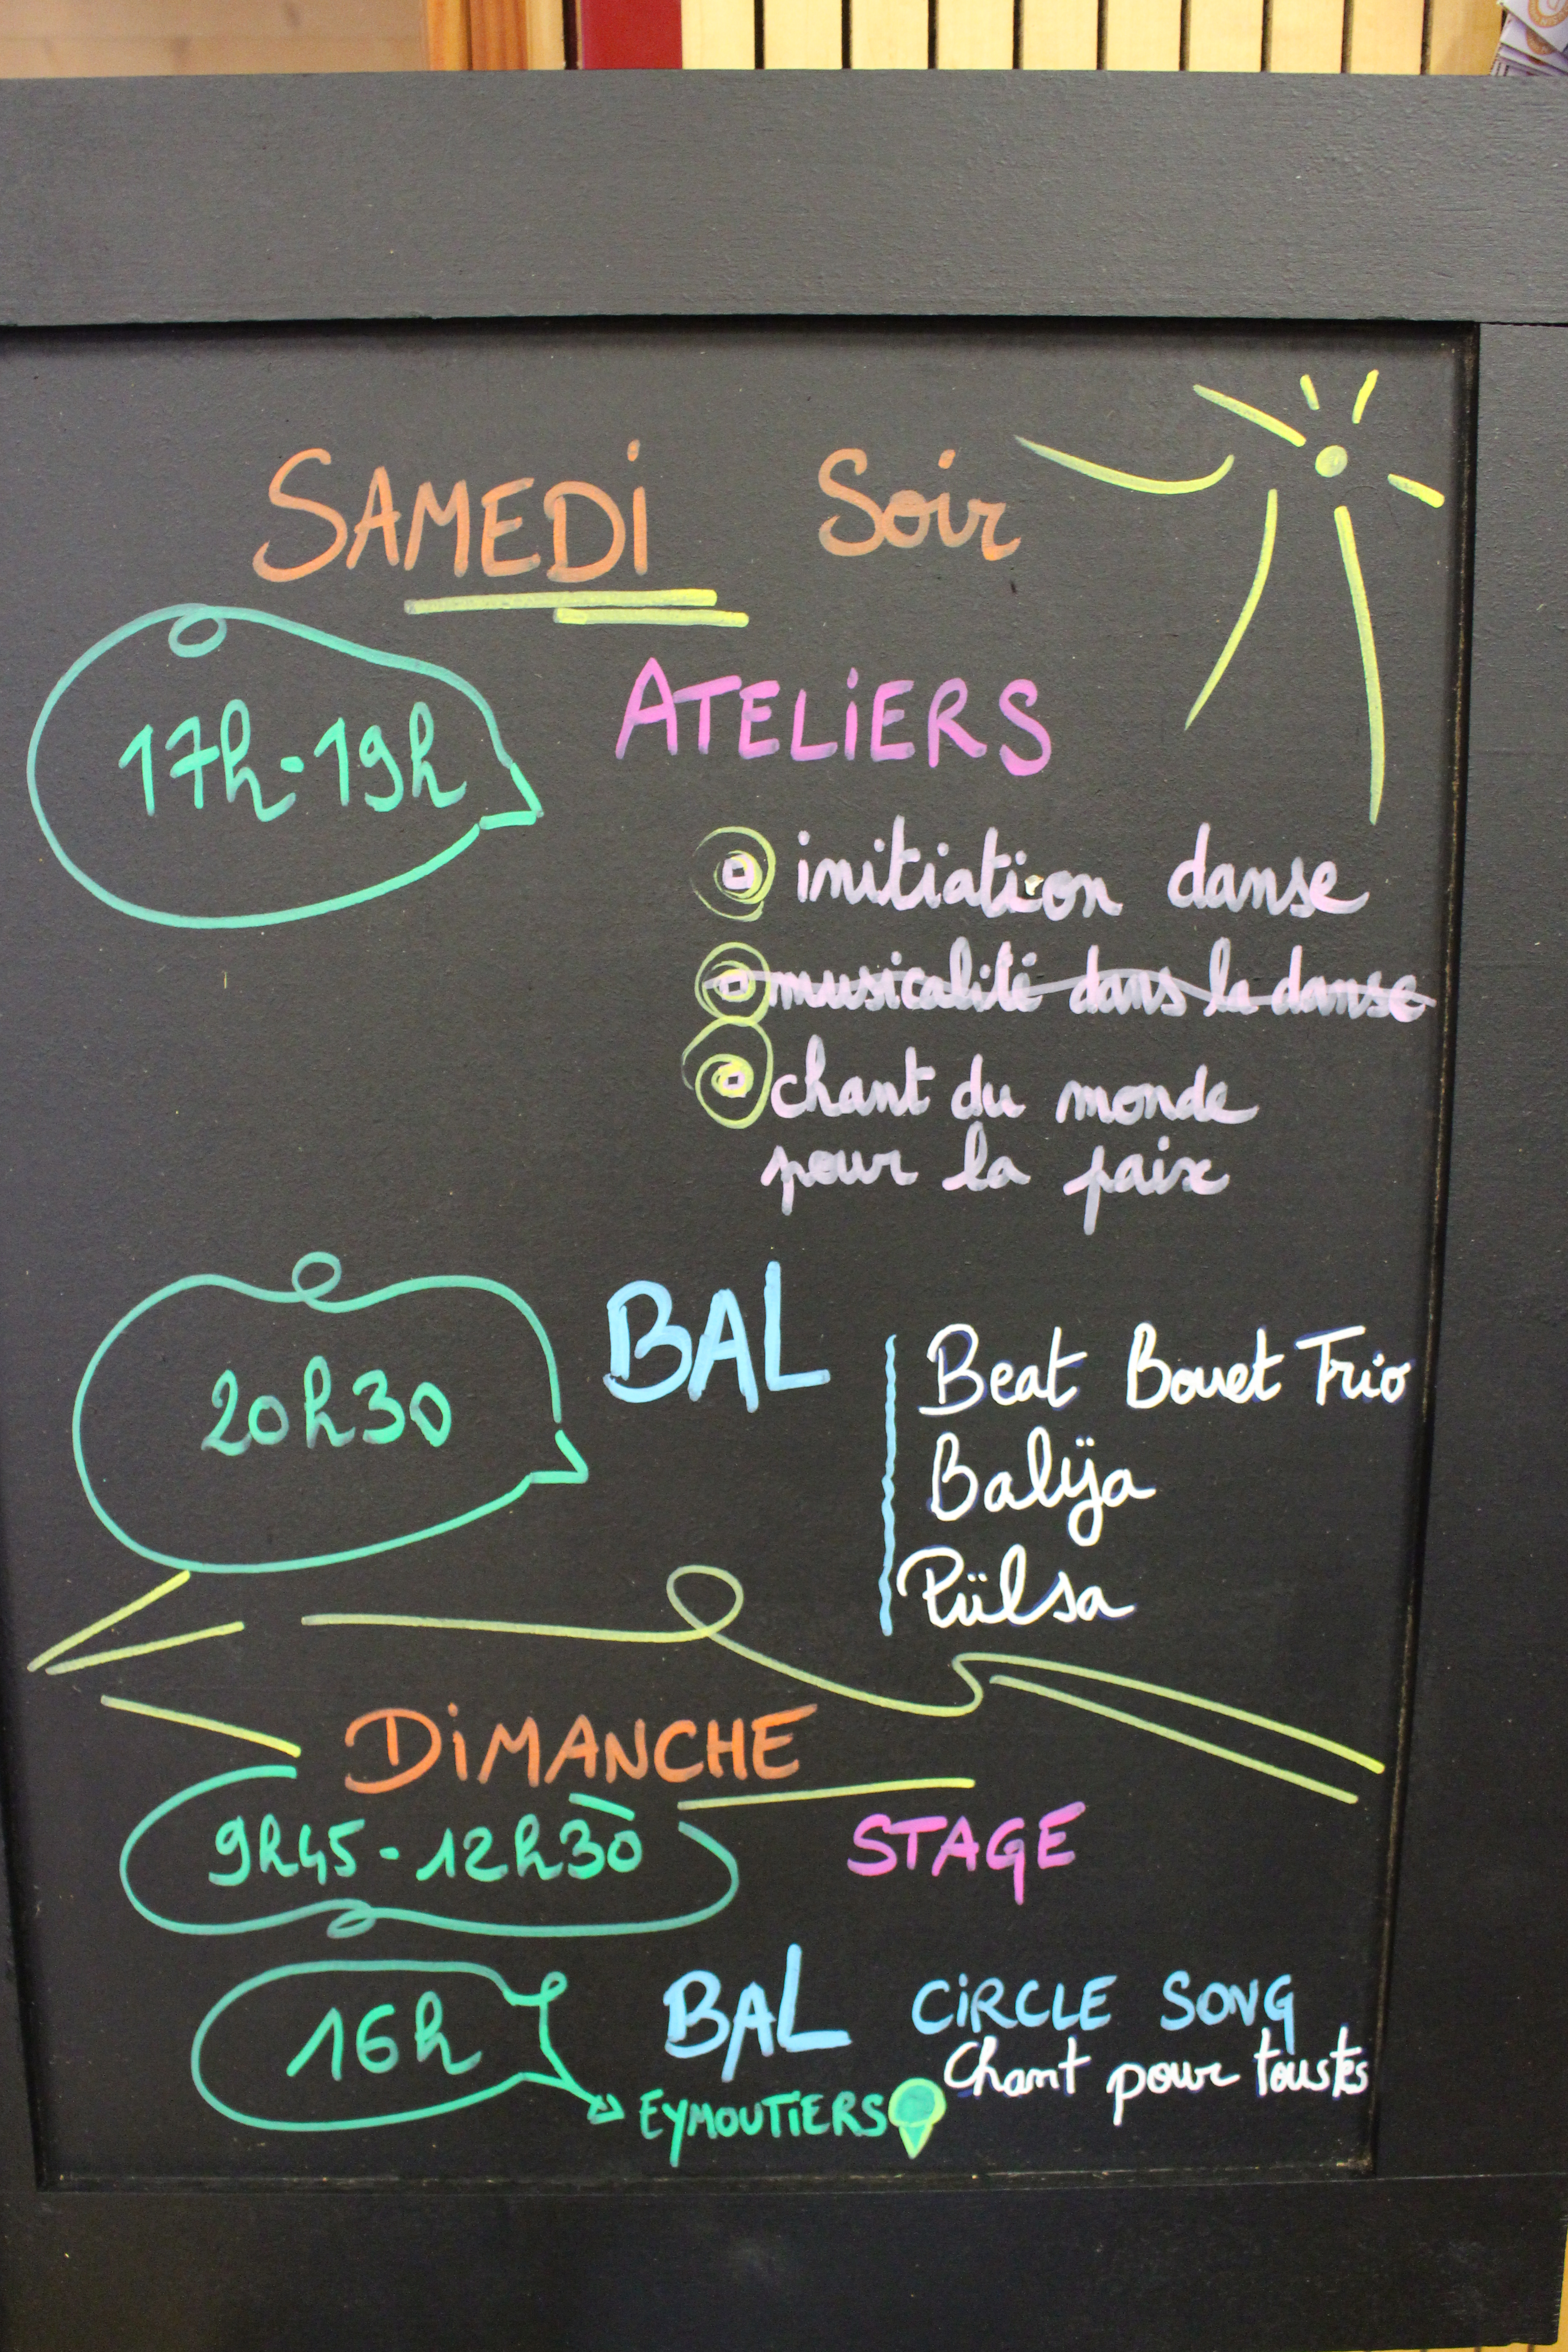 SAMEDI Soir
17h-19h ATELIERS
initiation danse
musicalité dans la danse
chant du monde
pour la paix
20h30 BAL
Beat Bouet Trio
Balÿa
Pülsa
DiMANCHE
9h45-12h30 STAGE
16h BAL CiRCLE SONG
Chant pour toustes
EYMOUTiERS